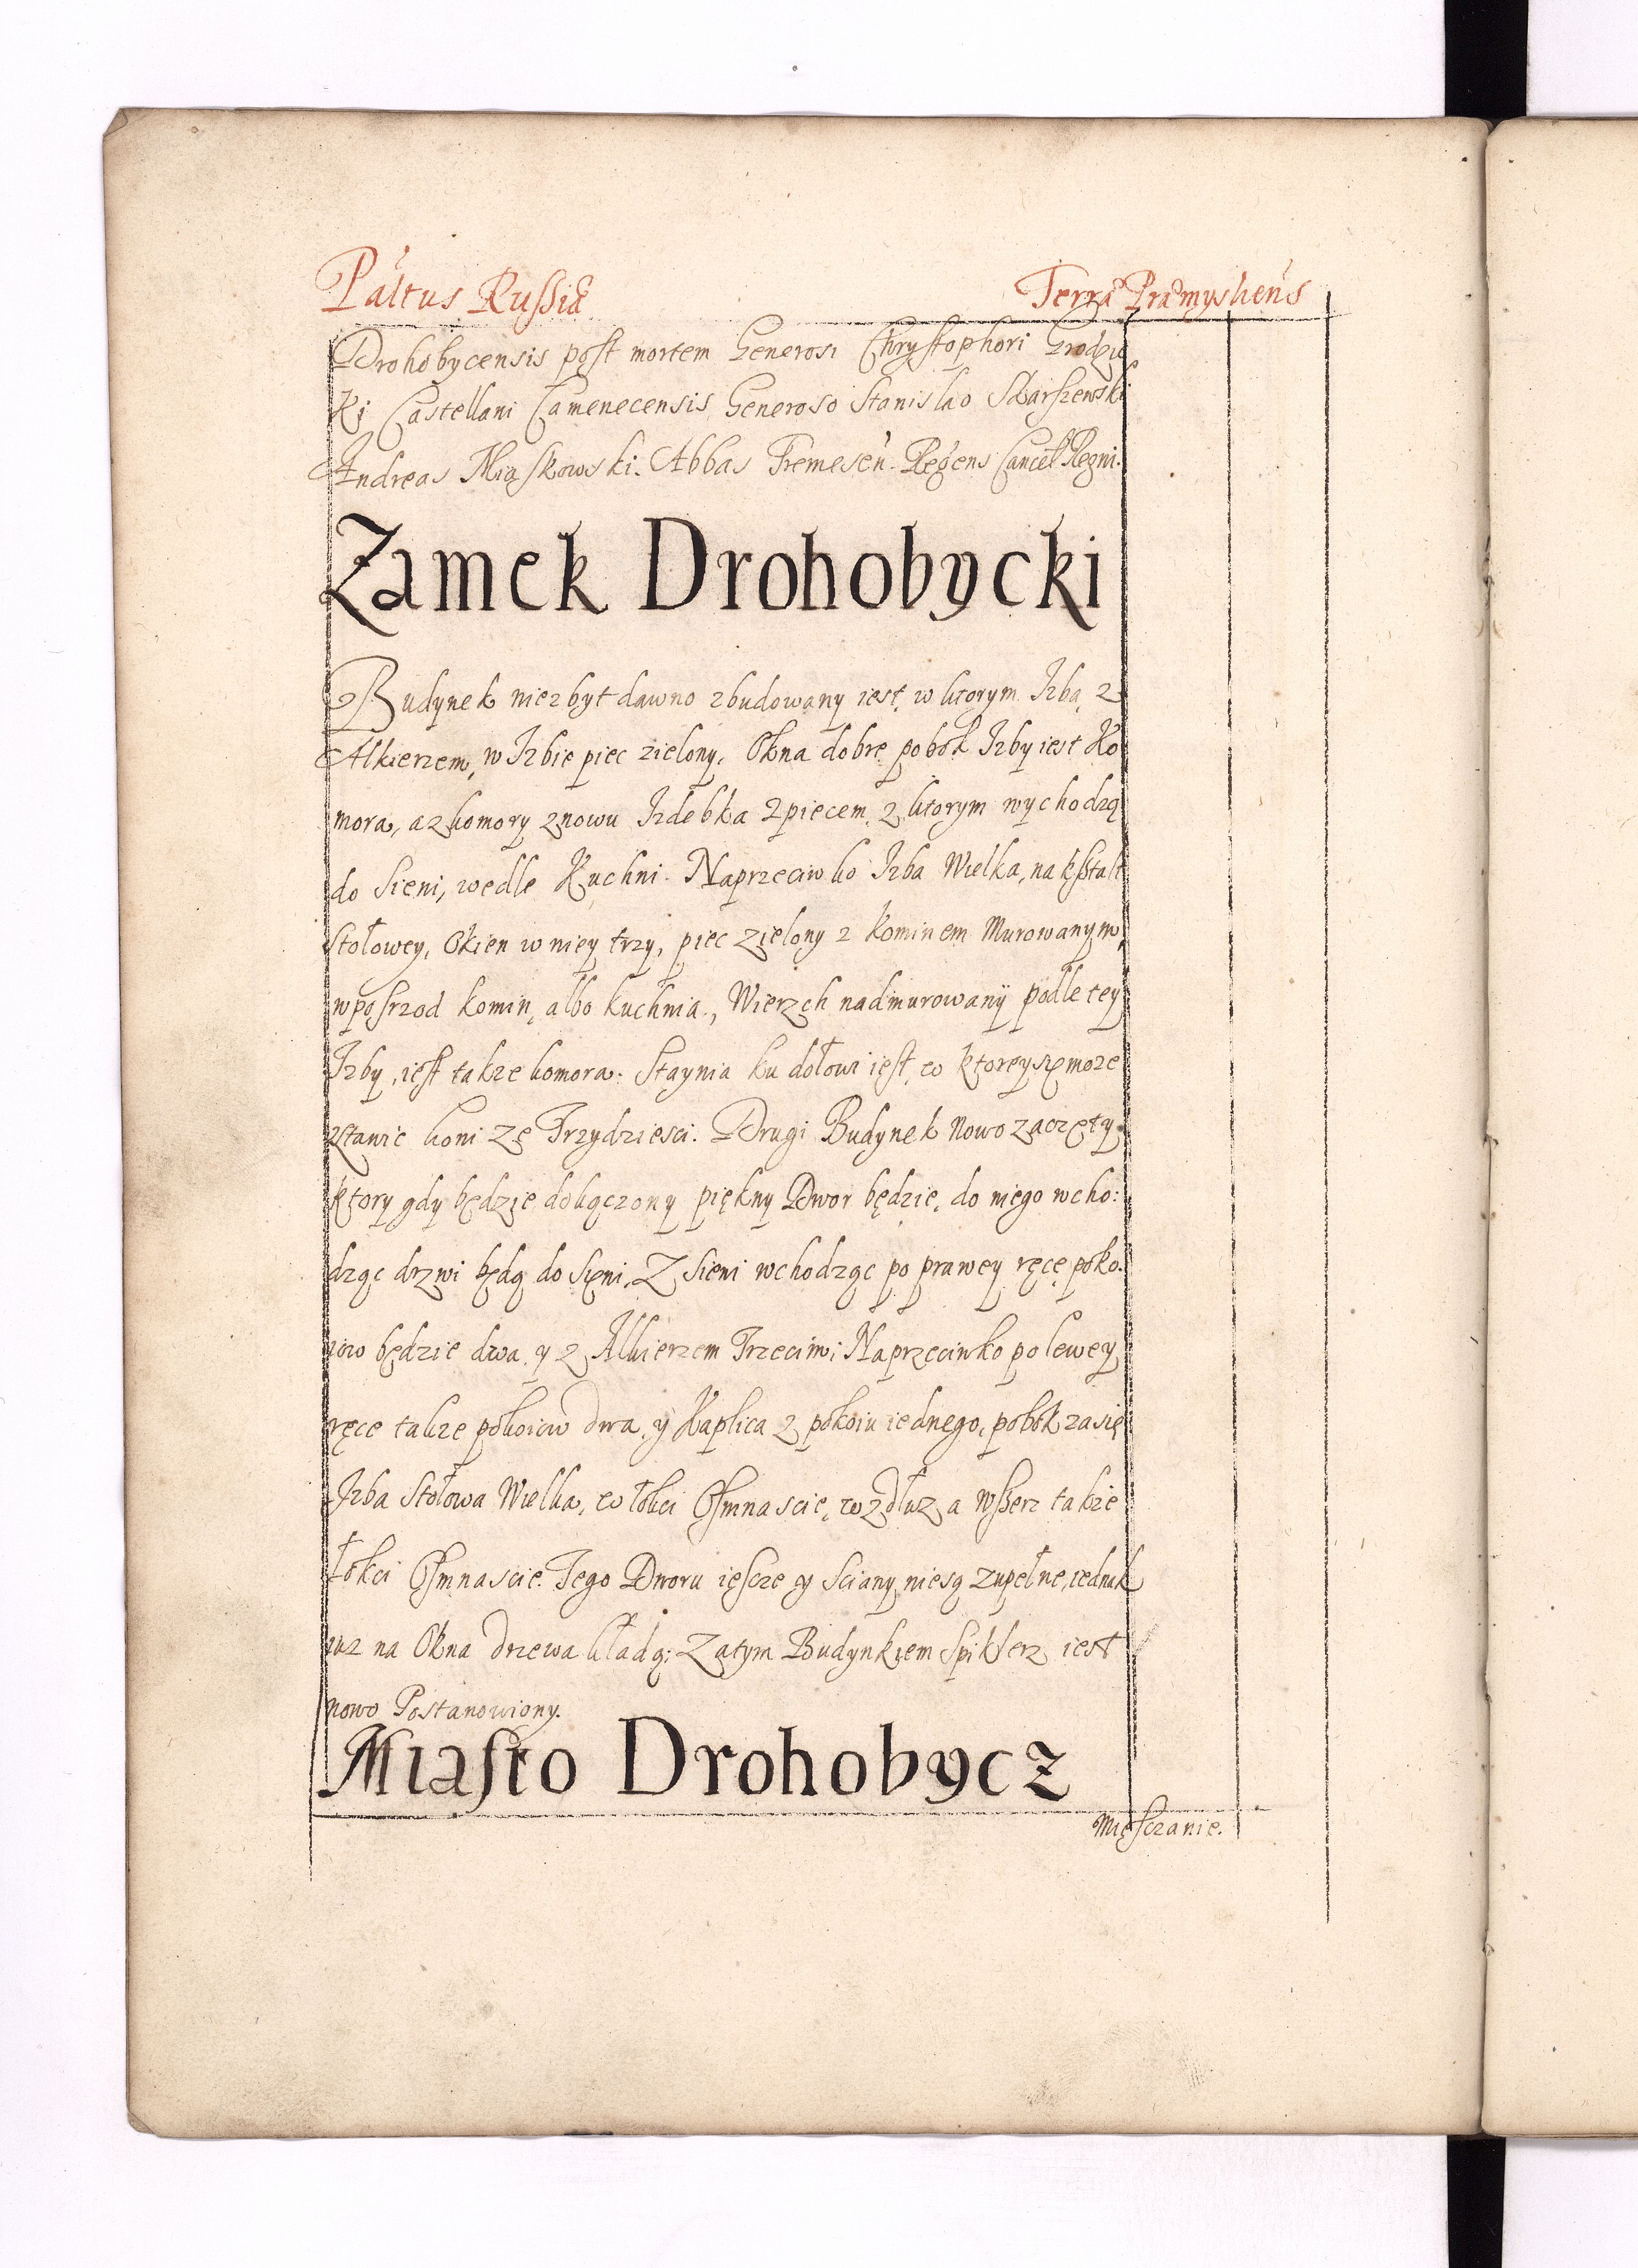 Pal'tus Russiæ
Terræ Præmyslien's
Drohobycensis post mortem Generosi Chrystophori Grodzic
Ki Castellani Camenecensis Generoso Stanislao Skarszewski
Andreas Miąskowski. Abbas Tremesen'. Regens Cancel Regni.
Zamek Drohobycki
Budynek niezbyt dawno zbudowany iest, w ktorym Izba, z
Alkierzem, w Izbie piec zielony, Okna dobre pobok Izby iest Ko
mora, a z komory znowu Izdebka z piecem, z ktorym wychodzą
do Sieni, wedle Kuchni. Naprzeciwko Izba Wielka, na kształt
stołowey, Okien w niey trzy, piec zielony z kominem Murowanym,
w posrzod komin, albo kuchnia, Wierzch nadmurowany podle tey
Izby, iest takze komora. Staynia ku dołowi iest, w ktorey się moze
zstawic koni ze Trzydziesci. Drugi Budynek Nowo zaczęty
ktory gdy będzie dokączony piękny Dwor będzie, do niego wcho:
dząc drzwi będą do sieni, Z Sieni wchodząc po prawey ręce poko.
iow będzie dwa y z Alkierzem Trzecim; Naprzeciwko po lewey
ręce takze pokoiow dwa, y Kaplica z pokoiu iednego, pobok zasię
Izba Stołowa Wielka, w łokci Osmnascie, wzdłuz a wszerz takze
łokci Osmnascie. Tego Dworu iescze y sciany niesą zupełne, iednak
iuz na Okna drzewa kładą; Zatym Budynkiem Spiklerz iest
nowo Postanowiony.
Miasto Drohobycz
Miesczanie.